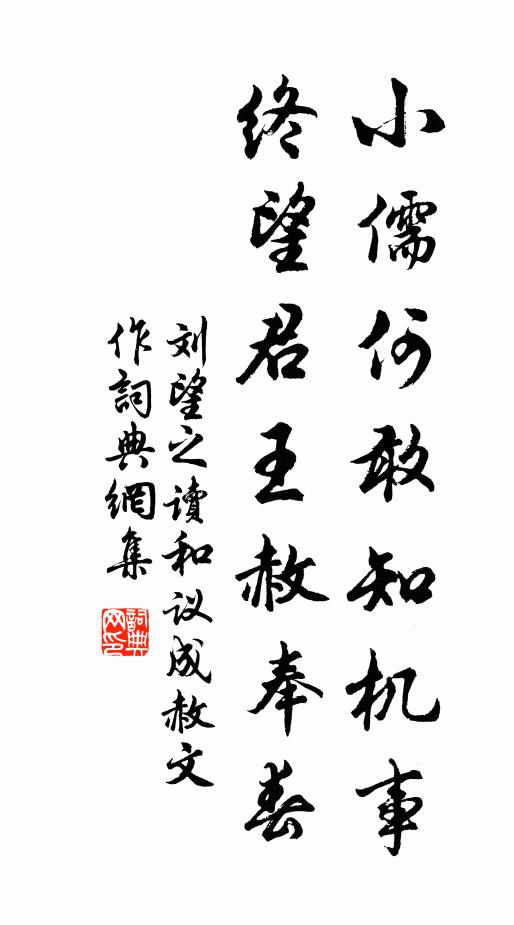 小儒何敢知机事
终望君王赦奉春
刘望之读和议成赦文
作词典網集
詞典
网印